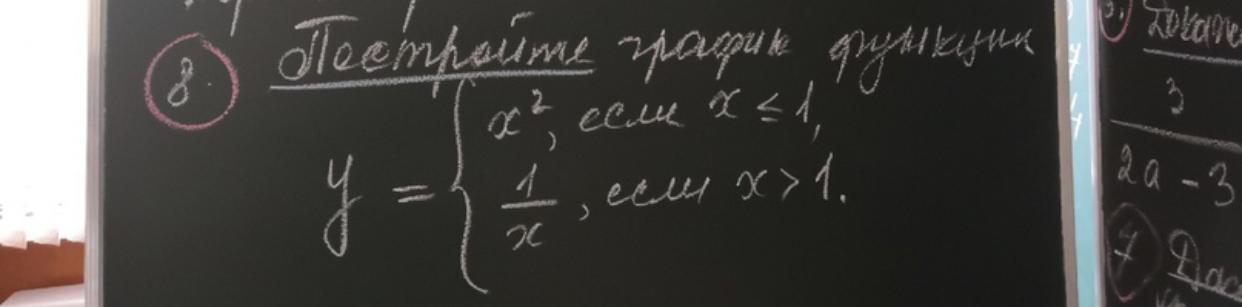 8. Постройте график функции
y = { x², если x ≤ 1,
1/x, если x > 1.
3
2a - 3
7